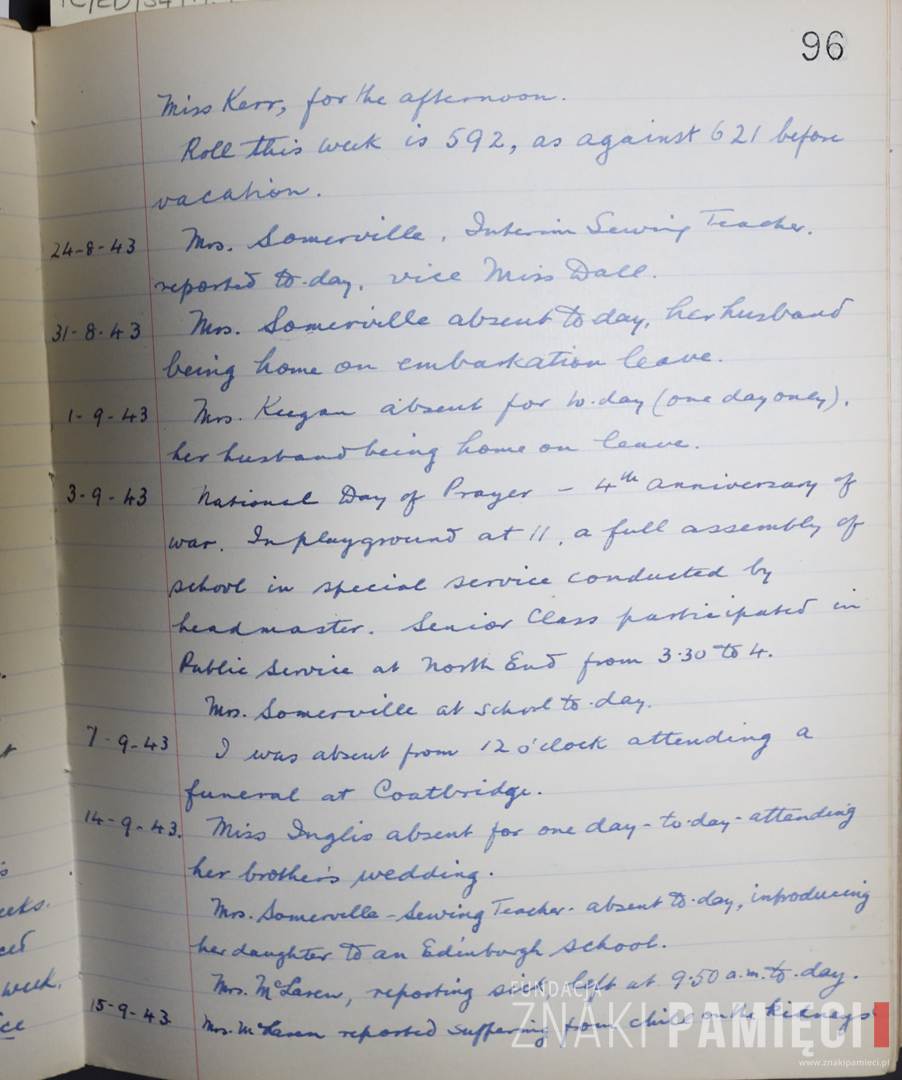 96
Miss Kerr, for the afternoon.
Roll this week is 592, as against 621 before
vacation.
24-8-43 Mrs. Somerville, Interim Sewing Teacher,
reported to-day, vice Miss Dall.
31-8-43 Mrs. Somerville absent to day, her husband
being home on embarkation leave.
1-9-43 Mrs. Keegan absent for to-day (one day only),
her husband being home on leave.
3-9-43 National Day of Prayer - 4th anniversary of
war. In playground at 11, a full assembly of
school in special service conducted by
headmaster. Senior Class participated in
Public Service at North End from 3.30 to 4.
Mrs. Somerville at school to-day.
7-9-43 I was absent from 12 o'clock attending a
funeral at Coatbridge.
14-9-43. Miss Inglis absent for one day-to-day-attending
her brother's wedding.
Mrs. Somerville-Sewing Teacher-absent to-day, introducing
her daughter to an Edinburgh school.
Mrs. McLaren, reporting sick, left at 9.50 a.m. to-day.
15-9-43 Mrs. McLaren reported suffering from chill on the kidneys
FUNDACJA
ZNAKI PAMIĘCI
www.znakipamieci.pl